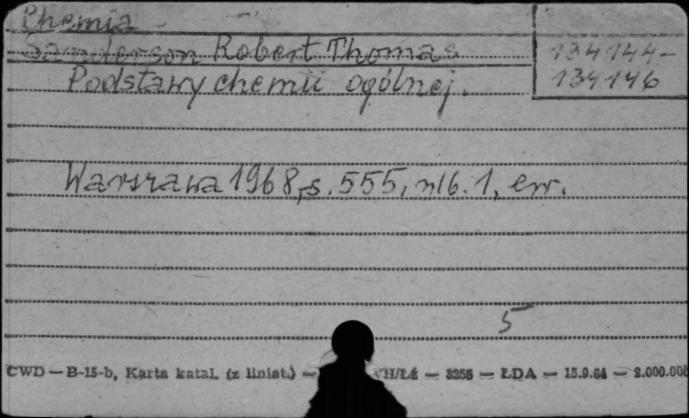 Chemia
Sanderson Robert Thomas
134144-
134146
Podstawy chemii ogólnej.
Warszawa 1968, s. 555, nlb. 1, err.
5
CWD — B-15-b, Karta katal. (z liniat.) — H/Łź — 3255 — ŁDA — 15.9.64 — 2.000.000